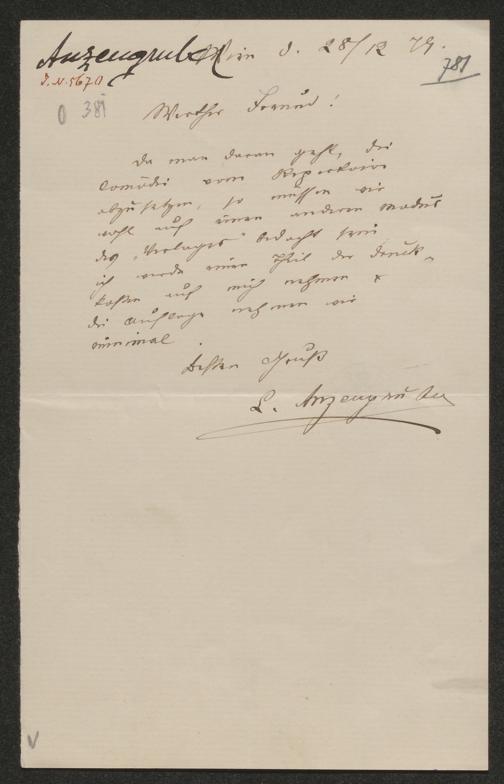 Anzengruber Wien d. 28/12 79.
J. N. 5670
781
0 381
Werther Freund!
Da man daran geht, die
Comödie vom Repertoire
abzusetzen, so müssen wir
wohl auf einen anderen Modus
des "Verlages" bedacht sein
ich werde einen Theil der Druck-
kosten auf mich nehmen &
die Auflage nehmen wir
minimal.
Besten Gruß
L. Anzengruber
V